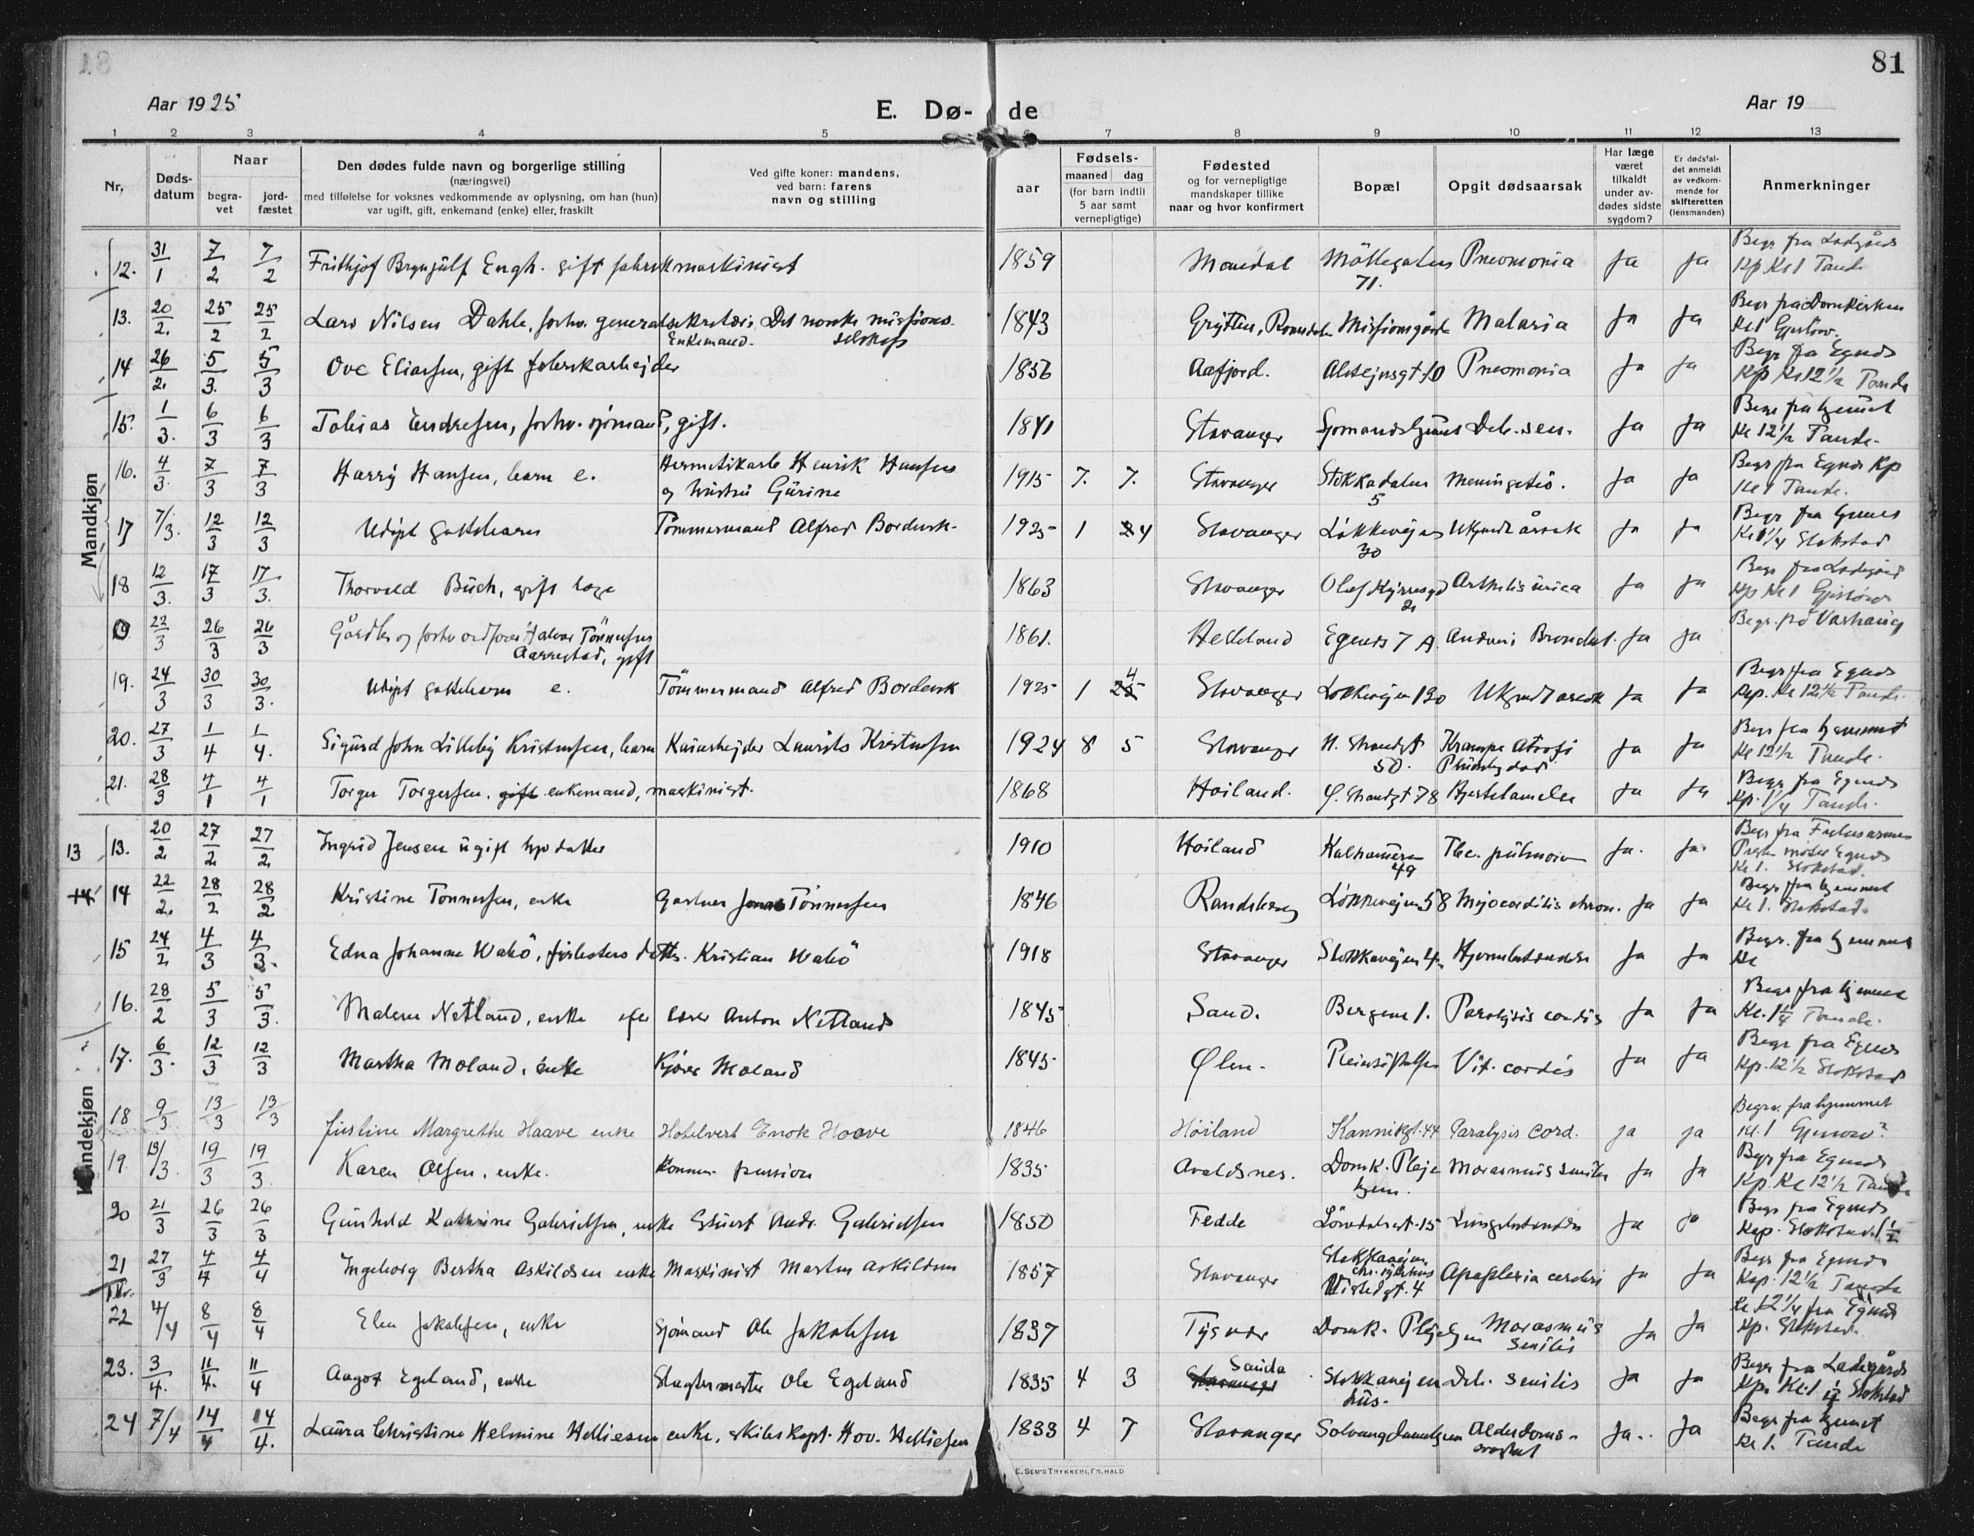 81
Aar 1925
E. Dø-de
Aar 19
1 2 3 4 5 6 7 8 9 10 11 12 13
Nr.
Døds-datum
Naar
begra-vet
jord-fæstet
Den dødes fulde navn og borgerlige stilling
(næringsvei)
med tilføielse for voksnes vedkommende av oplysning, om han (hun)
var ugift, gift, enkemand (enke) eller, fraskilt
Ved gifte koner: mandens,
ved barn: farens
navn og stilling
aar
Fødsels-
maaned dag
(for barn indtil
5 aar samt
vernepligtige)
Fødested
og for vernepligtige
mandskaper tillike
naar og hvor konfirmert
Bopæl
Opgit dødsaarsak
Har læge
været
tilkaldt
under av-
dødes sidste
sygdom?
Er dødsfal-
det anmeldt
av vedkom-
mende for
skifteretten
(lensmanden)
Anmerkninger
Mandkjøn
12. 31/1 7/2 7/2 Frithjof Brynjulf Engh. gift fabrikmaskinist 1859 Møllegaten 71. Pneomonia Ja Ja Kp Kl 1 Tande
13. 20/2. 25/2 25/2 Lars Nilsen Dahle, forhv. generalsekretær, Det norske missions-selskap Enkemand. 1843 Grytten, Romsdalen Missionsgården Malaria Ja Ja Begr fra Domkirken Kl 1 Gjerløw.
14 26/2. 5/3. 5/3 Ove Eliassen, gift fabrikarbejder 1856 Aafjord. Alstejnsgt 10 Pneomonia Ja Ja Begr fra Egnds Kp Kl 12½ Tande
15. 1/3. 6/3 6/3 Tobias Endresen, forhv. sjømand, gift. 1841 Stavanger Sjømandshjems Deb. sen. Ja Ja Begr fra hjemmet Kl 12½ Tande.
16. 4/3. 7/3 7/3 Harry Hansen, barn e. Hermetikarb Henrik Hansen og hustru Gurine 1915 7. 7. Stavanger Stokkadalen 5 Meningitis. Ja Ja Begr fra Egnds Kp Kl 1 Tande.
17 7/3. 12/3 12/3 Udøpt guttebarn Tømmermand Alfred Bordevik 1925 1 24 Stavanger Løkkevejen 30 Ukjendt årsak Ja Ja Begr fra hjemmet Stokstad
18 12/3. 17/3 17/3. Thorvald Buch, gift læge 1863 Stavanger Olaf Kyrresgt Arthritis urica Ja Ja Begr fra Ladegård Kp Kl 1 Gjerløw
22/3 26/3 26/3 Gårdbr og forhv ordfører Halvor Tønnesen Aarrestad, gift 1861. Helleland Egenes 7 A. Ja Ja Begr. på Varhaug
19. 24/3 30/3 30/3. Udøpt guttebarn e. Tömmermand Alfred Bordevik 1925 1 4 Stavanger Løkkevejen 130 Ukjendt årsak Ja Ja Begr fra Egnds Kp. Kl 12½ Tande.
20. 27/3 1/4 1/4. Sigurd John Lilleby Kristensen, barn Kaiarbejder Laurits Kristensen 1924 8 5 Stavanger N. Strandgt 50. Krampe Atrofi Ja Ja Begr fra hjemmet Kl 12½ Tande.
21. 28/3 4/1 4/1 Torger Torgersen, gift enkemand, maskinist. 1868 Høiland. Ø. Strandgt 78 Hjertelamelse Ja Ja Begr fra Egnds Kp. 1¼ Tande.
Kvindekjøn
13 13. 20/2. 27/2. 27/2. Ingrid Jensen ugift hpv datter 1910 Høiland Kalhammeren 49 Tbc. pulmoin Ja. Ja. Begr fra Frelsesarmeen Kl 1. Stokstad.
14 14 22/2. 28/2 28/2 Kristine Tønnessen, enke Gartner Jonas Tönnessen 1846 Randeberg Løkkevejen 58 Myocarditis chron. Ja Ja Begr fra hjemmet Kl 1. Stokstad.
15 24/2 4/3 4/3. Edna Johanne Wabö, fyrbøters datter. Kristian Wabö 1918 Stavanger Stokkavejen Hjernebetændelse Ja Ja Begr. fra hjemmet Kl
16. 28/2 5/3 5/3. Malene Netland, enke efter lærer Anton Netland 1845 Sand. Bergene 1. Paralysis cordis Ja Ja Begr fra hjemmet Kl. 1¼ Tande.
17. 6/3. 12/3 12/3 Martha Moland, enke Kjører Moland 1845 Ølen. Vit. cordis Ja Ja Begr fra Egnds Kp. 12½ Stokstad
18 9/3 13/3 13/3 Justine Margrethe Haave enke Hotelvert Enok Haave 1846 Høiland Kannikgt. 44 Paralysis cord. ja ja Begrav. fra hjemmet Kl. 1 Gjerløw?
19. 13/3. 19/3 19/3. Karen Olsen, enke. Komm. pension 1835 Avaldsnes. Domk. Pleje hjem. Marasmus senilis Ja Ja Begr fra Egnds Kp. Kl 12½ Tande
20 21/3 26/3 26/3 Gunhild Kathrine Gabrielsen, enke Andr. Gabrielsen 1850 Fedde Lövdalsgt. 15 Lungebetændelse Ja Ja Begr fra Egnds Kap. Stokstad. 1½
21 27/3 4/4 4/4 Ingeborg Bertha Askildsen enke Maskinist Martin Askildsen 1857 Stavanger Apoplexia cerebri Ja Ja Begr fra Egnds Kap. 12½ Tande
22 4/4 8/4 8/4 Elen Jakobsen, enke Sjømand Ole Jakobsen 1837 Tysvær Domk. Plejehjem Marasmus Senilis Ja Ja Kl 12¼ fra Egnds Kp. Stokstad.
23. 3/4. 11/4. 11/4 Aagot Egeland, enke Slagtermester Ole Egeland 1835 4 3 Sauda Stavanger Stokkavejen hus. Deb. senilis Ja Ja Begr fra Ladegårds Kp. Kl. 1½ Stokstad
24 7/4 14/4 14/4. Laura Christine Helmine Helliesen enke, skibskapt. Hov. Helliesen 1833 4 7 Stavanger Solvang Damehjem Alderdoms- Ja. Ja Begr fra hjemmet Kl 1. Tande
E. SEM'S TRYKKERI, FR. HALD